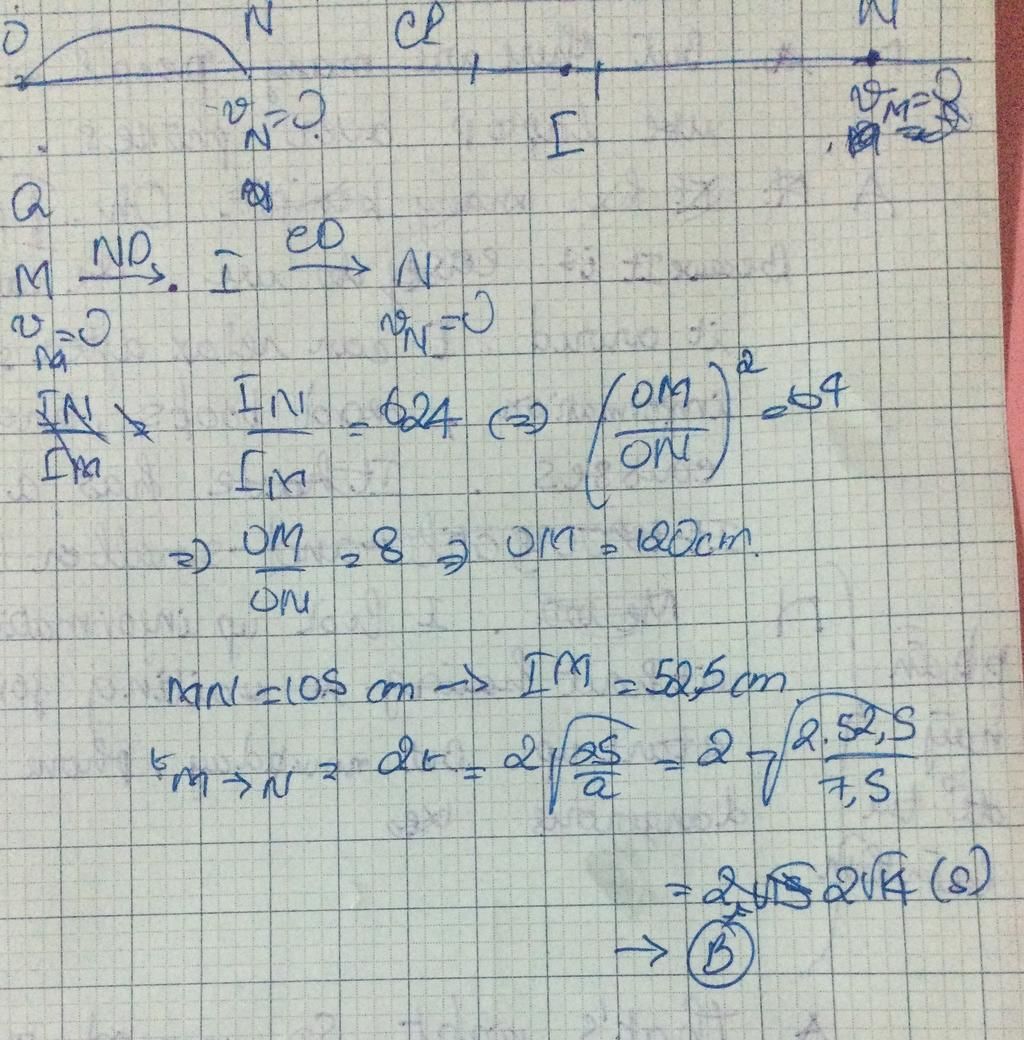 O N CD M
v_N = 0 I v_M = 0
Q
M \xrightarrow{ND} I \xrightarrow{CD} N
v_M = 0 v_N = 0
IN/IM IN/IM = 624 (=) (OM/ON)^2 = 64
=) OM/ON = 8 => OM = 120cm.
MN = 105 cm -> IM = 52,5 cm
t_{M→N} = 2t = 2\sqrt{2S/a} = 2\sqrt{2.52,5/7,5}
= 2\sqrt{14} (s)
→ (B)